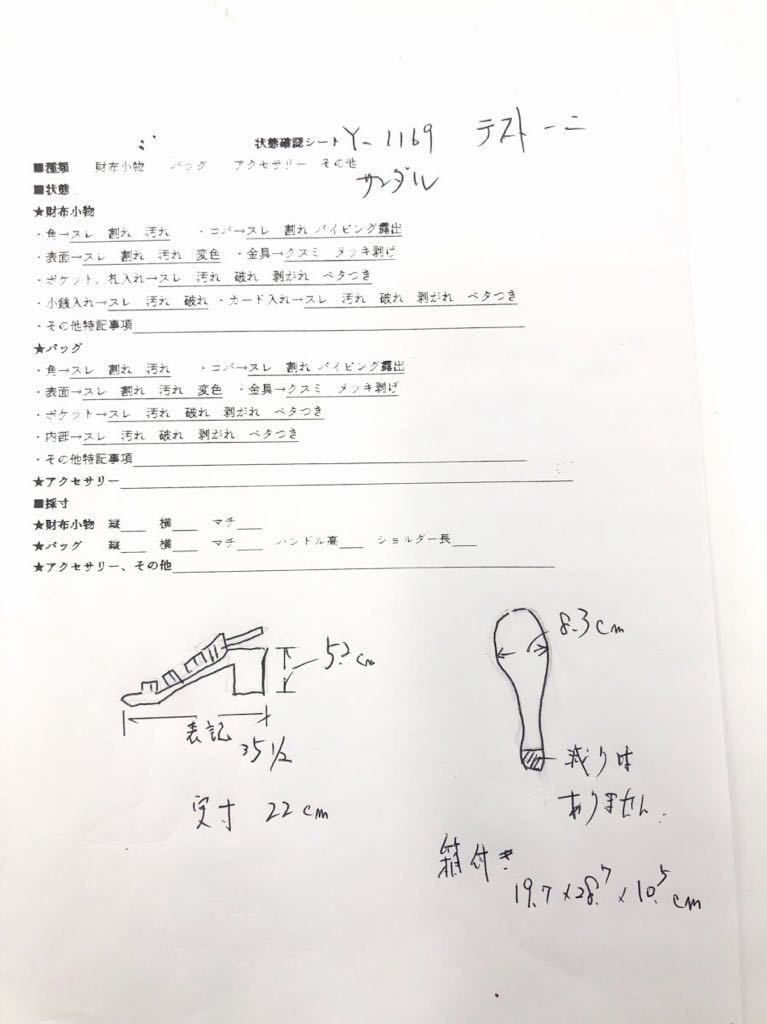 状態確認シート Y-1169 テストーニ
■種類 財布小物 バッグ アクセサリー その他
サンダル
■状態
★財布小物
・角→スレ 割れ 汚れ ・コバ→スレ 割れ パイピング露出
・表面→スレ 割れ 汚れ 変色 ・金具→クスミ メッキ剥げ
・ポケット、札入れ→スレ 汚れ 破れ 剥がれ ベタつき
・小銭入れ→スレ 汚れ 破れ ・カード入れ→スレ 汚れ 破れ 剥がれ ベタつき
・その他特記事項
★バッグ
・角→スレ 割れ 汚れ ・コバ→スレ 割れ パイピング露出
・表面→スレ 割れ 汚れ 変色 ・金具→クスミ メッキ剥げ
・ポケット→スレ 汚れ 破れ 剥がれ ベタつき
・内部→スレ 汚れ 破れ 剥がれ ベタつき
・その他特記事項
★アクセサリー
■採寸
★財布小物 縦 横 マチ
★バッグ 縦 横 マチ ハンドル高 ショルダー長
★アクセサリー、その他
5.2cm
8.3cm
表記
35 1/2
減りは
ありません.
実寸 22cm
箱付き
19.7×28.7×10.5cm